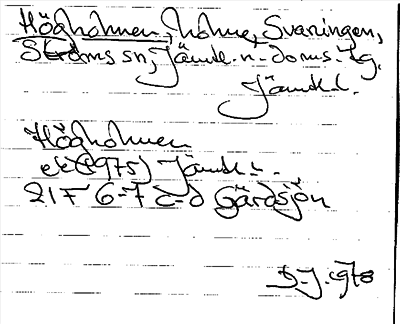 Högholmen, holme, Svaningen,
Ströms sn, Jämtl. n. doms. tg.
Jämtl. l.
Högholmen
ek (1975) Jämtl. l.
21F 6-7 c-d Gärdsjön
S.J. 1978